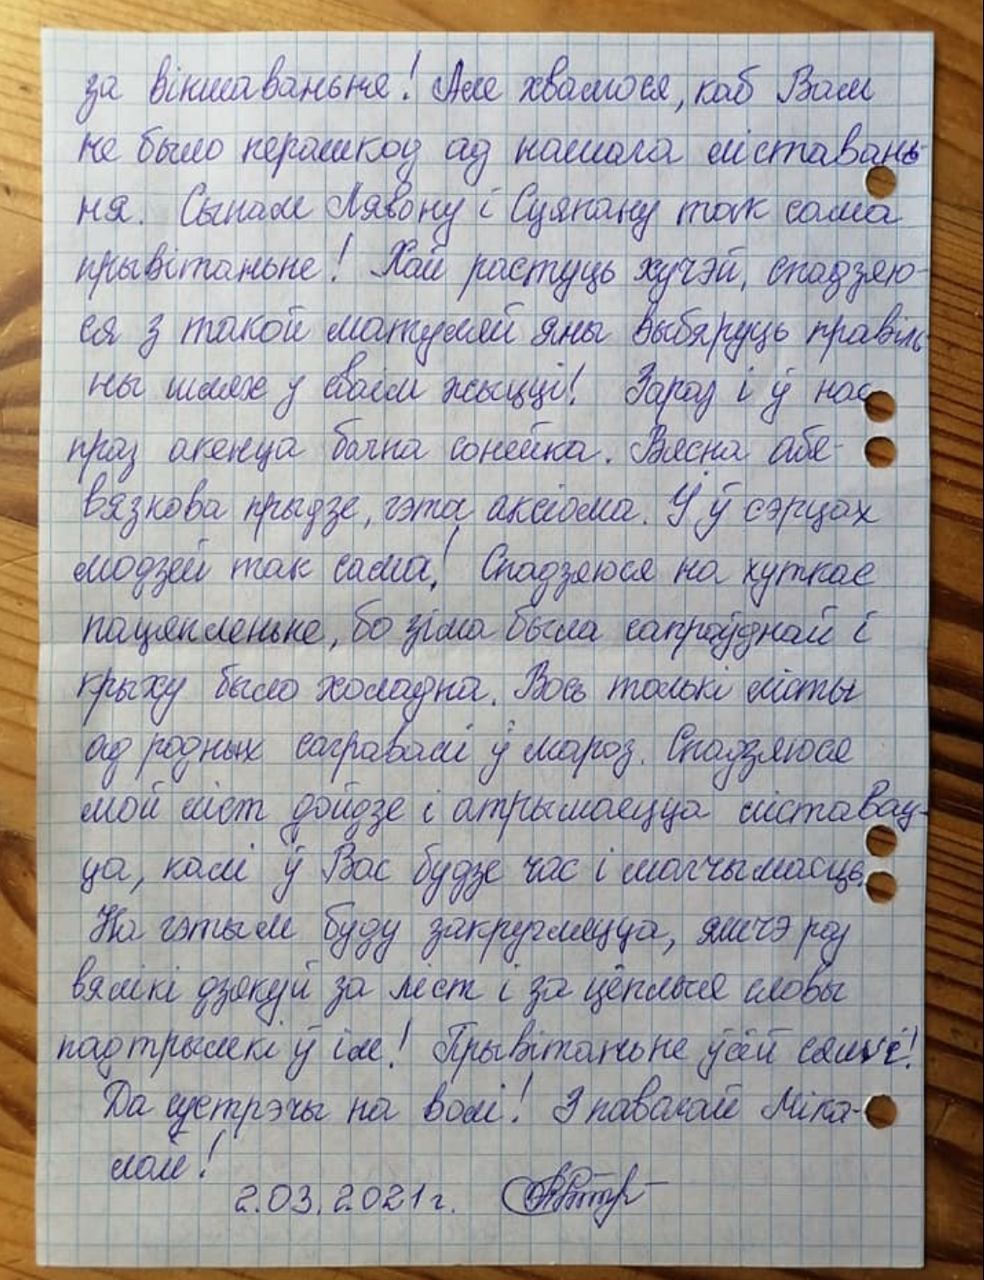 за віншаваньне! Але хвалюся, каб Вам
не было перашкод ад нашага ліставань-
ня. Сынам Лявону і Сцяпану так сама
прывітаньне! Хай растуць хучэй, спадзяю-
ся з такой матуляй яны выбяруць правіль-
ны шлях у сваім жыцці! Зараз і ў нас
праз акенца бачна сонейка. Вясна абя-
вязкова прыдзе, гэта аксіома. І ў сэрцах
людзей так сама! Спадзяюся на хуткае
пацяпленьне, бо зіма была сапраўднай і
крыху было холадна. Вось толькі лісты
ад родных сагравалі ў мароз. Спадзяюся
мой ліст дойдзе і атрымаецца ліставац-
ца, калі ў Вас будзе час і магчымасць.
На гэтым буду закругляцца, яшчэ раз
вялікі дзякуй за ліст і за цёплыя словы
падтрымкі ў ім! Прывітаньне ўсёй сям'і!
Да сустрэчы на волі! З павагай Міка-
лай!
2.03.2021г.